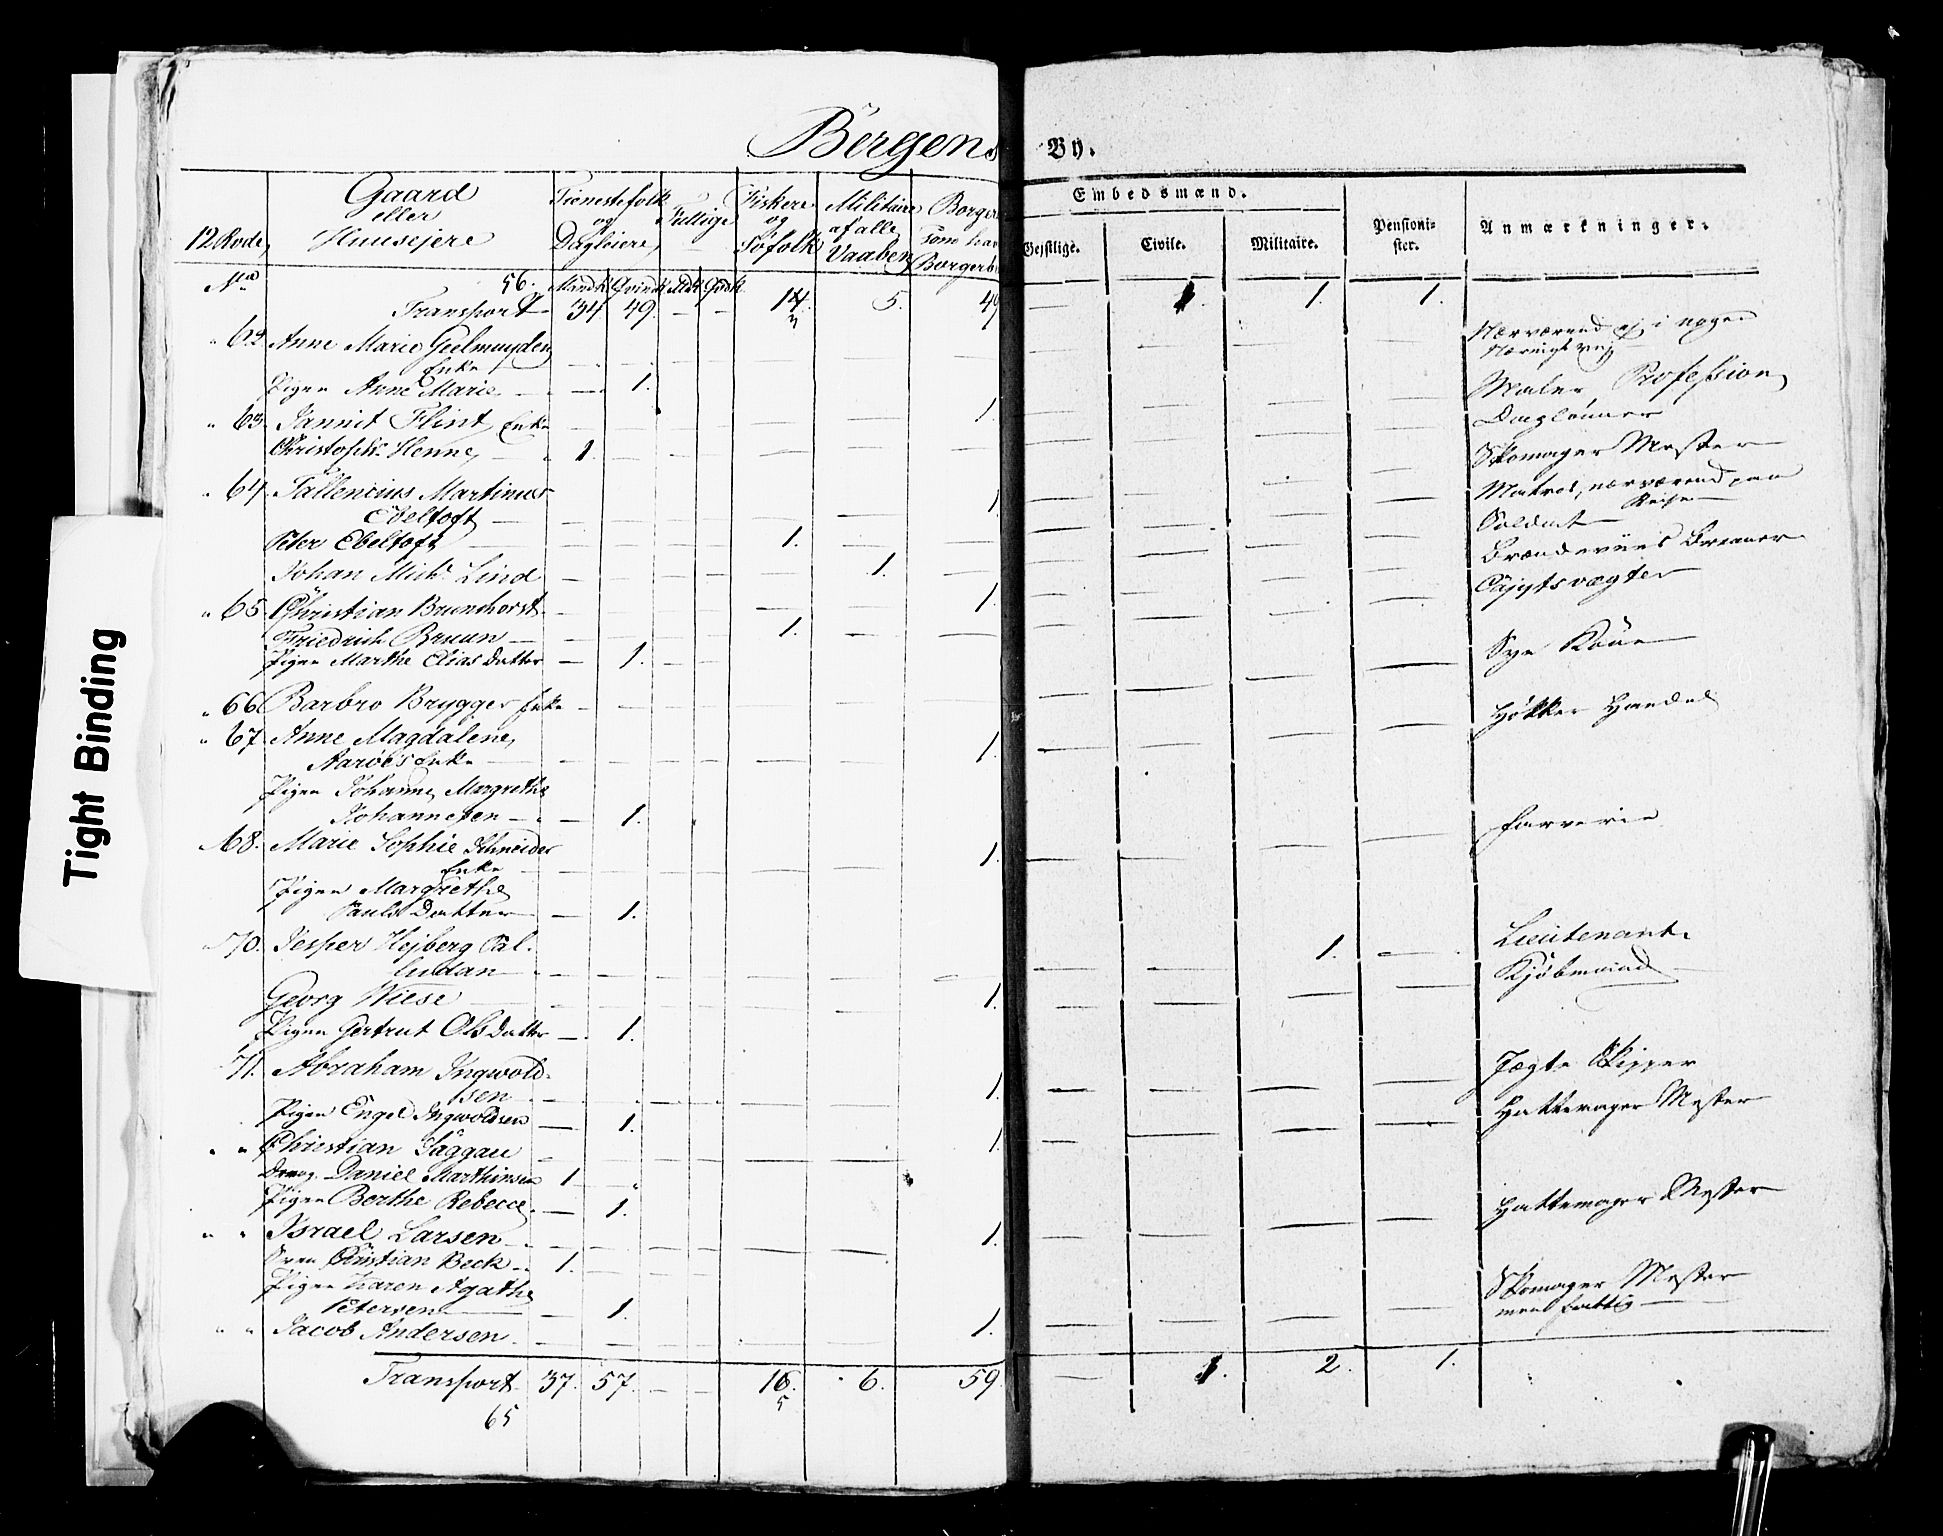 Bergens By.
12 Rode,
Gaard
eller
Huusejere
Tienestefolk
og
Dagleiere,
Fattige
Fiskere
og
Søfolk
Militaire
af alle
Vaaben
Borgere
som har
Embedsmænd.
Geistlige.
Civile.
Militaire.
Pensioni-
ster.
Anmærkninger.
No 56. Mandk Qvindk Mdk Qvdk
Transport 34 49. — — 14. 5. 49 — 1. 1. 1.
3
" 62 Anne Marie Geelmuyden Nærværend ej i nogen
Enke — Næringsvej
Pigen Anne Marie — 1.
" 63 Jannit Flint Enke — 1. Maler Profession
Christoph: Henne, — 1. — Dagleiner
" 64. Martinus 1. Skomager Mester
Ebeltoft —
Peter Ebeltoft — 1. — Matros, nærværend paa
Reise
Johan Mich: Lind — 1. Soldat
" 65 Christian Brunchorst — 1. Brændeviins Brænner
Friedrich Bruun — 1. —
Pigen Marthe Elias Datter — 1. — —
" 66 Barbro Brygger Enke — Sye Kone
" 67. Anne Magdalene, 1. Høkker Handel
Enke —
Pigen Johanne Margrethe
Johannesen — 1.
" 68. Marie Sophie Schneider 1. Farverie
Enke —
Pigen Margrethe
Pauls Datter — 1.
" 70. Jesper Hejberg Cal- 1. Lieutenant
ludan —
Georg Wiese — 1. Kjøbmand
Pigen Gertrut Ols Datter — 1.
71. Abraham Ingwold- 1. Jægte Skipper
sen —
Pigen Engel Ingwoldsen — 1.
" " Christian Saggau — 1. Hattemager Mester
Dreng. Daniel Marthinsen 1
Pigen Berthe Rebecce — 1.
" " Israel Larsen — 1. Hattemager Mester
Sven Christian Beck — 1.
Pigen Karen Agathe
Petersen — 1.
" " Jacob Andersen — 1. Skomager Mester
men fattig —
Transport 37. 57. — — 16. 6. 59. — 1. 2. 1.
65 5
Tight Binding